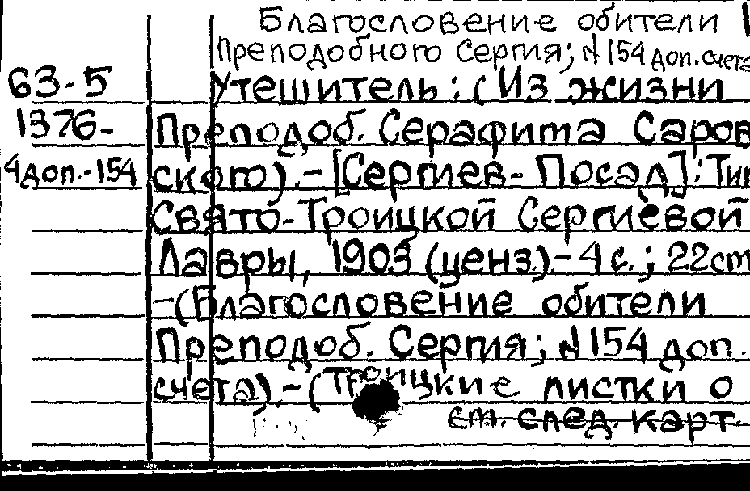 Благословение обители
Преподобного Сергия; № 154 доп. счета
63-5 Утешитель: (Из жизни
1376- Преподоб. Серафима Саров
4 доп.-154 ского).-[Сергиев-Посад]: Тип
Свято-Троицкой Сергиевой
Лавры, 1903 (ценз.).-4 с.; 22cm
-(Благословение обители
Преподоб. Сергия; № 154 доп.
счета).-(Троицкие листки о
см. след. карт.